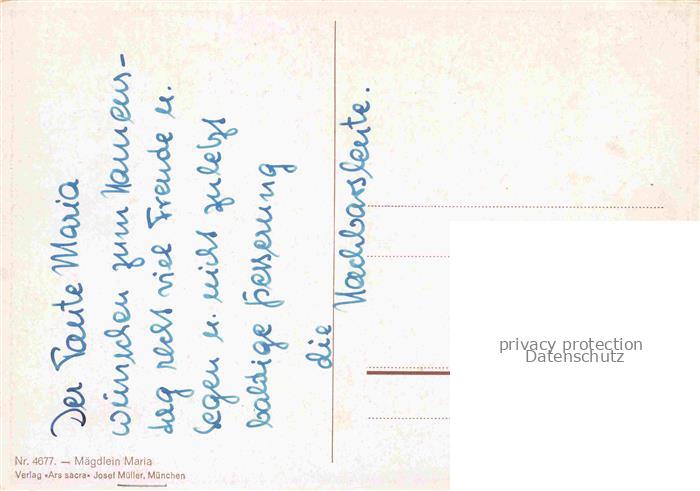 Der Tante Maria
wünschen zum Namens-
tag recht viel Freude u.
Segen u. nicht zuletzt
baldige Besserung
die
Nachbarsleute.
Nr. 4677. — Mägdlein Maria
Verlag «Ars sacra» Josef Müller, München
privacy protection
Datenschutz